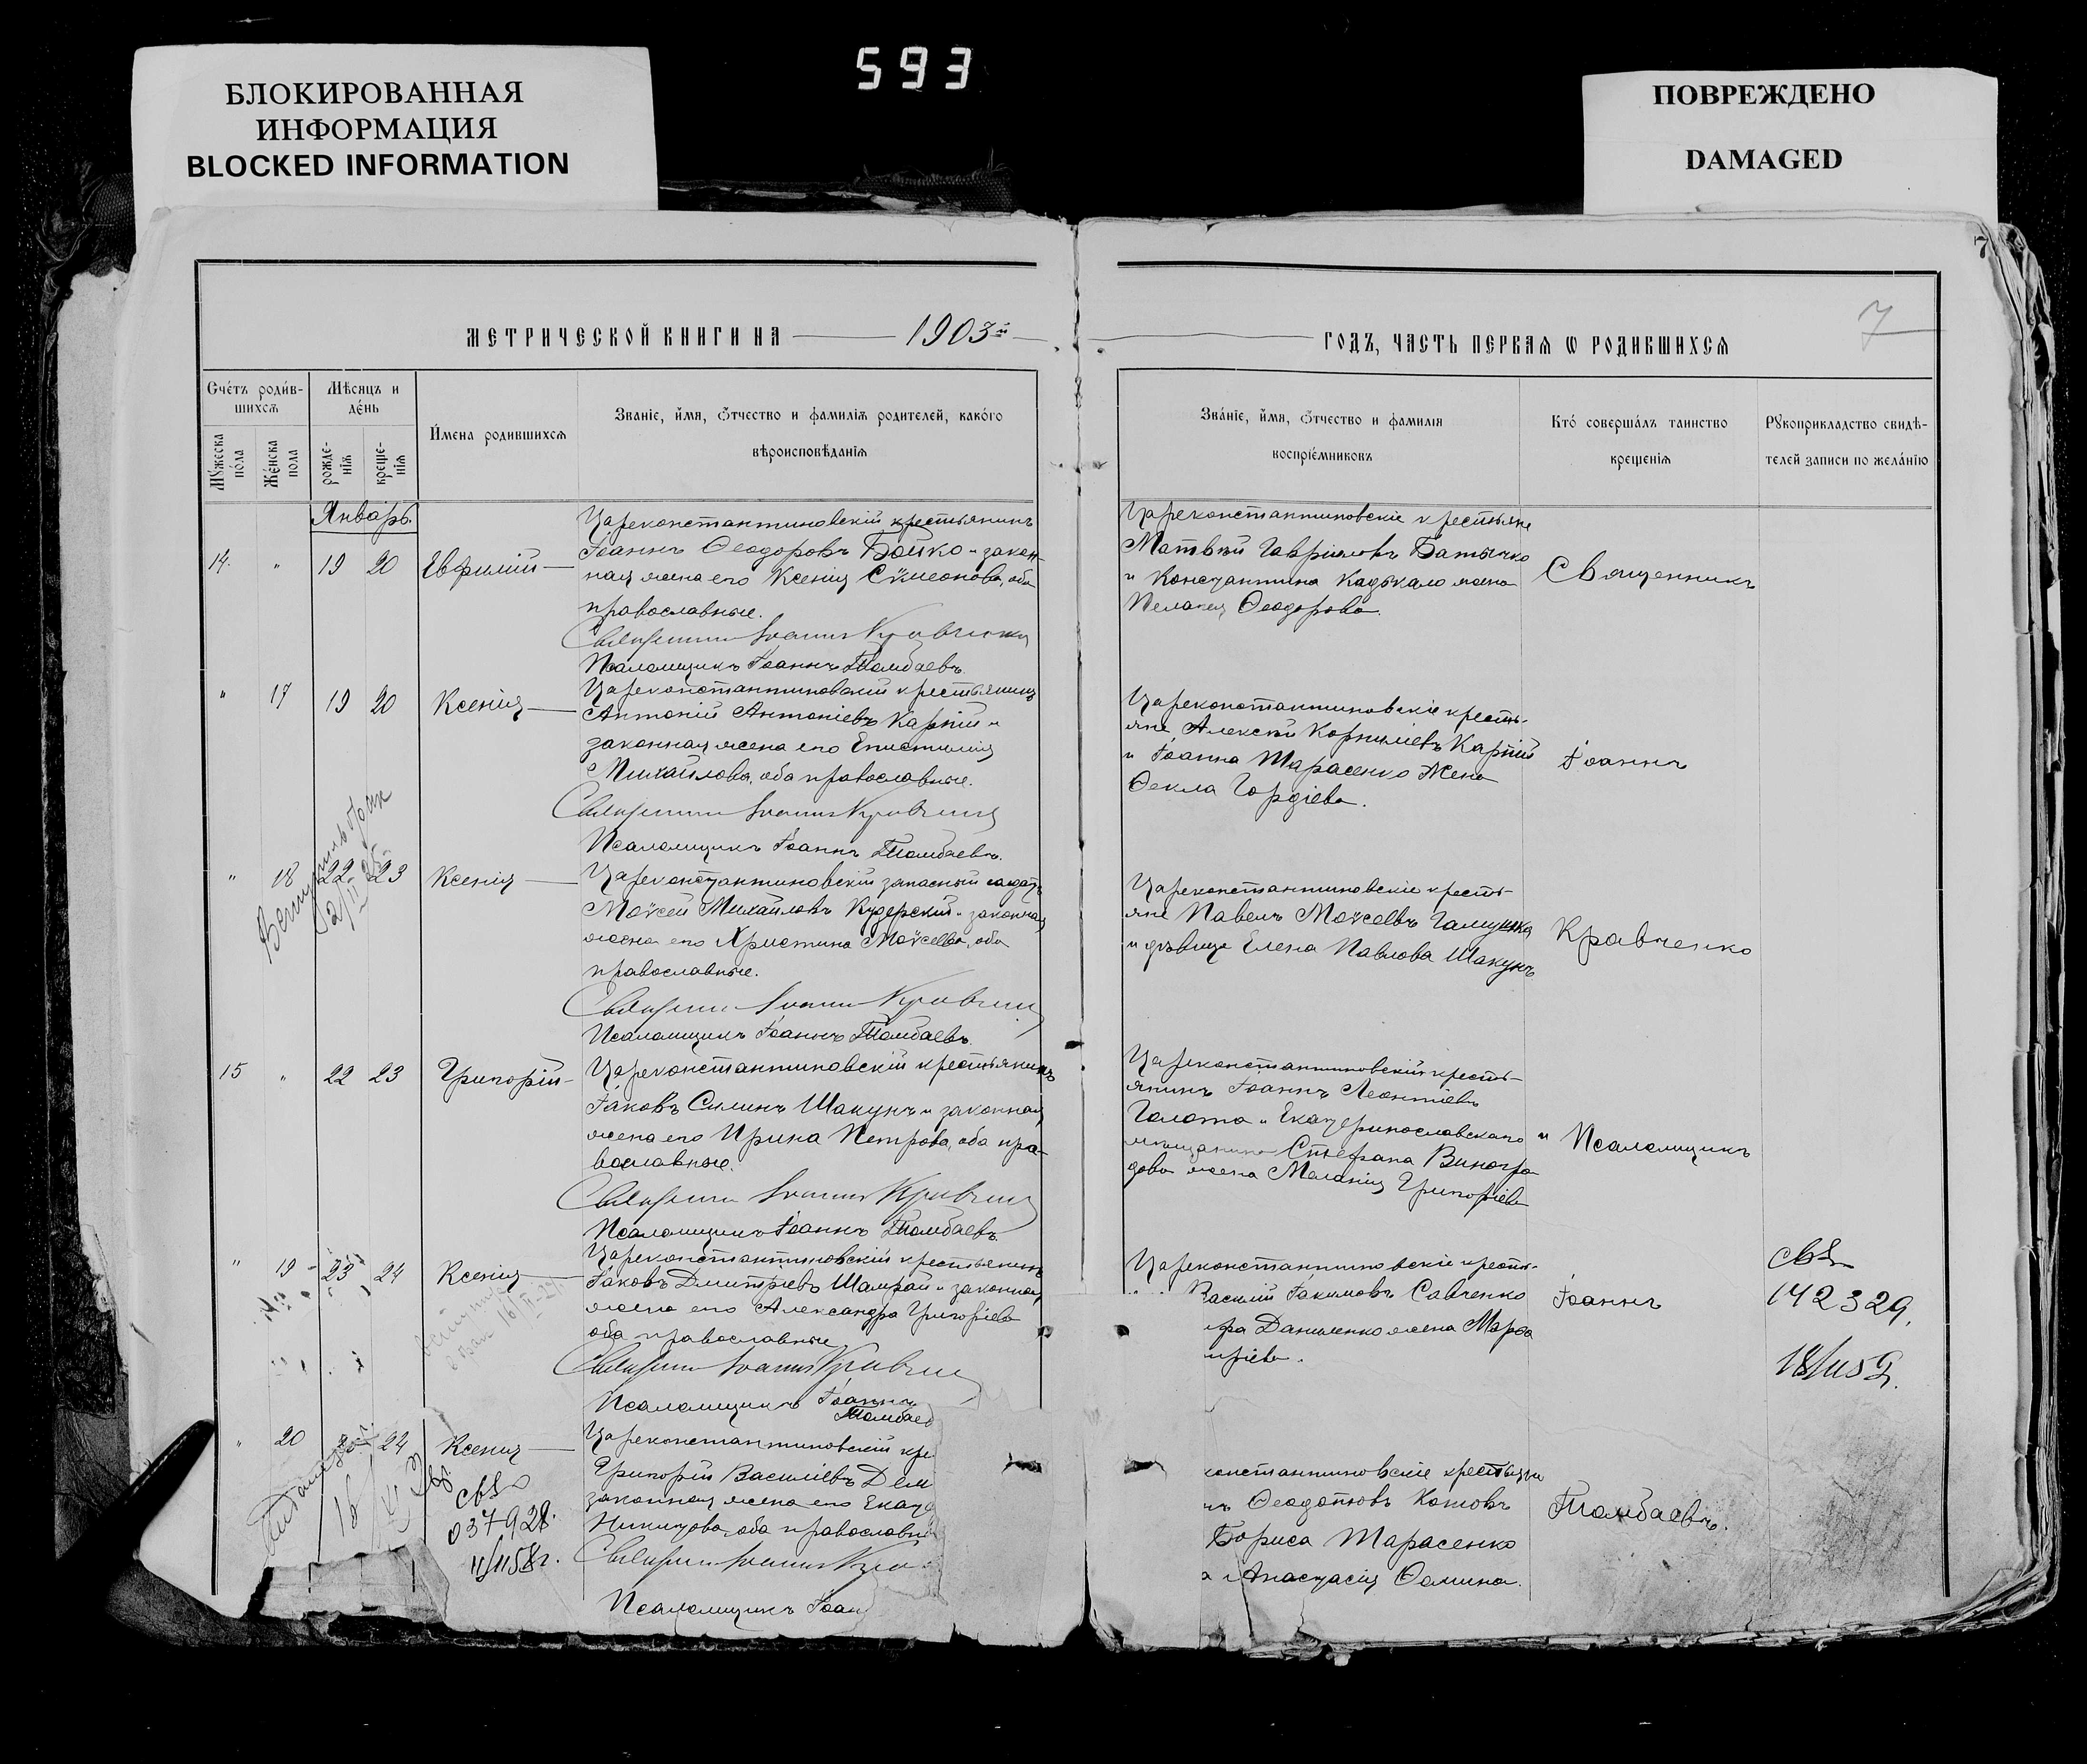 БЛОКИРОВАННАЯ
ИНФОРМАЦИЯ
BLOCKED INFORMATION
593
ПОВРЕЖДЕНО
DAMAGED
7
7
МЕТРИЧЕСКОЙ КНИГИ НА 1903й
ГОДЪ, ЧАСТЬ ПЕРВАЯ Ѡ РОДИВШИХСЯ
Счетъ родив-
шихся
Мѣсяцъ и
день
Мужеска
пола
Женска
пола
рожде-
нія
креще-
нія
Имена родившихся
Званіе, имя, отчество и фамилія родителей, какого
вѣроисповѣданія
Званіе, имя, отчество и фамилія
воспріемниковъ
Кто совершалъ таинство
крещенія
Рукоприкладство свидѣ-
телей записи по желанію
Январь.
14. " 19 20 Евфимій
Цареконстантиновскій крестьянинъ
Іоаннъ Ѳеодоровъ Бойко и закон-
ная жена его Ксенія Сѵмеонова, оба
православные.
Священникъ Іоаннъ Кравченко
Псаломщикъ Іоаннъ Томбаевъ.
Цареконстантиновскіе крестьяне
Матвѣй Гавріиловъ Батычко
и Константина Кадькало жена
Пелагея Ѳеодорова.
Священникъ
" 17 19 20 Ксенія
Цареконстантиновскій крестьянинъ
Антоній Антоніевъ Карпій и
законная жена его Епистимія
Михайлова, оба православные.
Священникъ Іоаннъ Кравченко
Псаломщикъ Іоаннъ Томбаевъ.
Цареконстантиновскіе кресть-
яне Алексѣй Корниліевъ Карпій
и Іоанна Тарасенко жена
Ѳекла Гордіева.
Іоаннъ
" 18 22 23 Ксенія
Цареконстантиновскій запасный солдатъ
Моѵсей Михайловъ Кудерскій и законная
жена его Христина Моѵсеева, оба
православные.
Священникъ Іоаннъ Кравченко
Псаломщикъ Іоаннъ Томбаевъ.
Цареконстантиновскіе кресть-
яне Павелъ Моѵсеевъ
и дѣвица Елена Павлова Шакунъ
Кравченко
15 " 22 23 Григорій
Цареконстантиновскій крестьянинъ
Іаковъ Силинъ Шакунъ и законная
жена его Ирина Петрова, оба пра-
вославные.
Священникъ Іоаннъ Кравченко
Псаломщикъ Іоаннъ Томбаевъ.
Цареконстантиновскій кресть-
янинъ Іоаннъ Леонтіевъ
Галота и Екатеринославскаго
мѣщанина Стефана Виногра-
дова жена Меланія Григоріева
и Псаломщикъ
" 19 23 24 Ксенія
Цареконстантиновскій крестьянинъ
Іаковъ Дмитріевъ Шамрай и законная
жена его Александра Григоріева
оба православные
Священникъ Іоаннъ Кравченко
Псаломщикъ Іоаннъ
Томбаев
Цареконстантиновскіе кресть-
Василій Іакимовъ Савченко
Даниленко жена Марѳа
Іоаннъ
142329.
" 20 24 Ксенія
037928.
Цареконстантиновскій кре
Григорій Василіевъ Дем
законная жена его Екате
Никитова, оба православны
Священникъ Іоаннъ Крав
Псаломщикъ Іоан
константиновскіе крестьяне
Ѳеодотовъ Котовъ
Бориса Тарасенко
а Анастасія Ѳомина.
Томбаевъ.